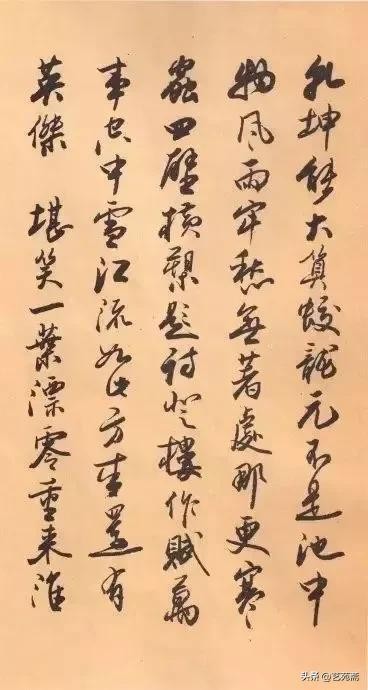 乾坤能大算蛟龍元不是池中
物風雨牢愁無著處那更寒
蟲四壁橫槊題詩登樓作賦萬
事空中雪江流如此方來還有
英傑 堪笑一葉漂零重來淮
头条 @艺苑斋